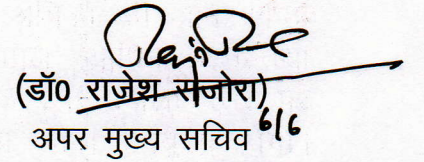 (डॉ0 राजेश रांजोरा)
अपर मुख्य सचिव 6/6